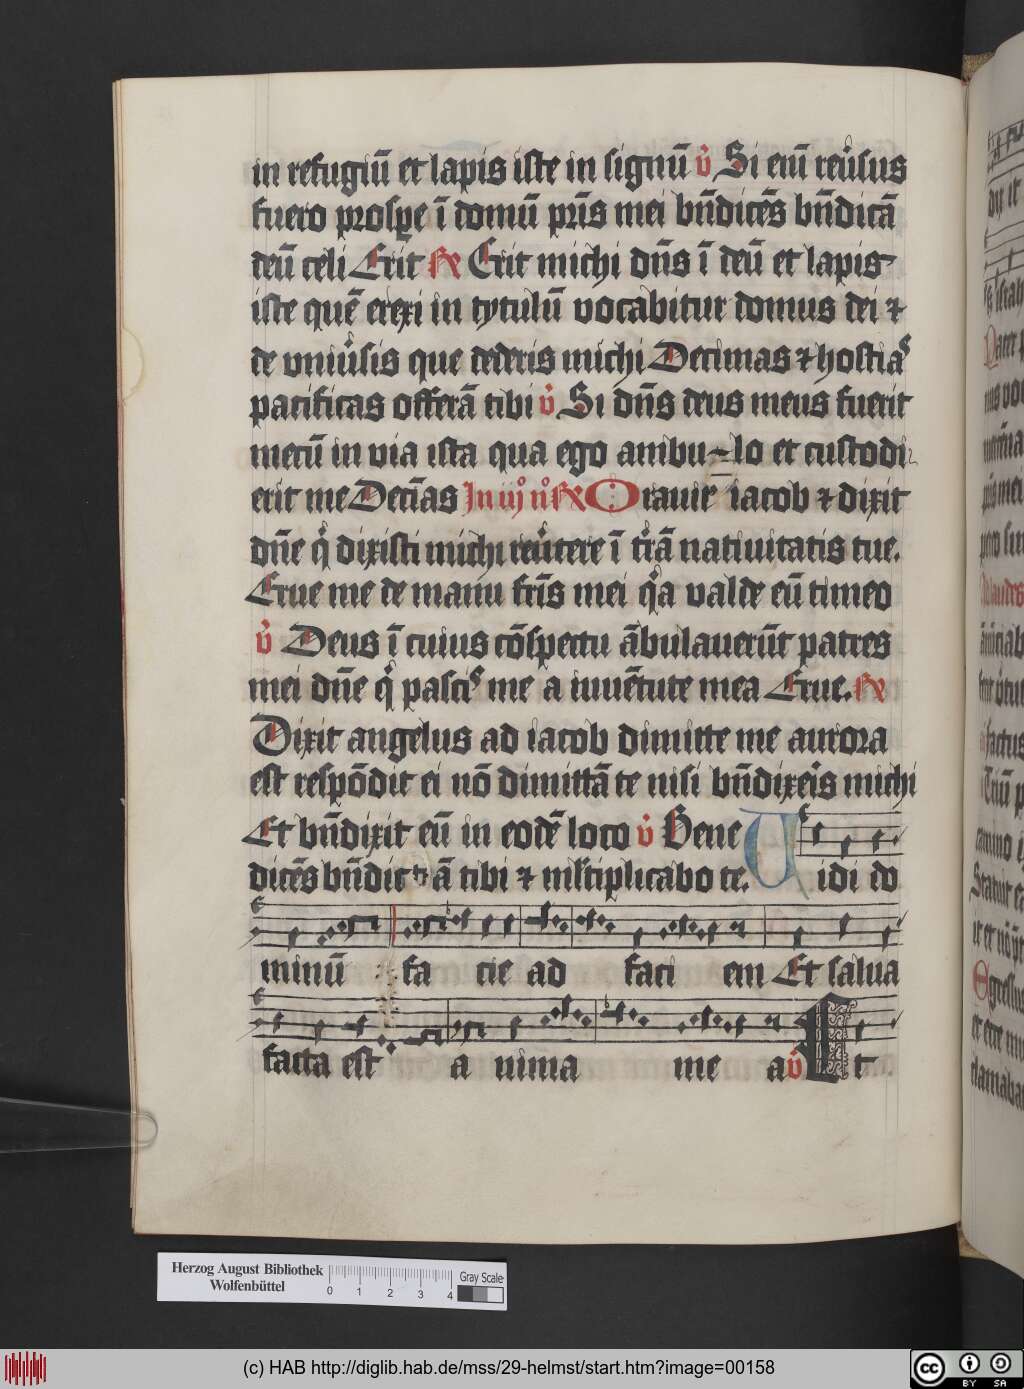 in refugiū et lapis iste in signū v̇ Si enī reūsus
fuero prospe ī domū pris̄ mei bn̄dicēs bn̄dicā
deū celi Erit ℟ Erit michi dn̄s ī deū et lapis
iste quē erexi in tytulū vocabitur domus dei ⁊
de vniūsis que dederis michi Decimas ⁊ hostias
pacificas offerā tibi v̇ Si dn̄s deus meus fuerit
mecū in via ista qua ego ambu~lo et custodi
erit me Decīas In iij nͦ ℟ Orauit iacob ⁊ dixit
dn̄e q̇ dixisti michi reūtere ī tr̄ā natiuitatis tue.
Erue me de manu fr̄is mei qͣa valde eū timeo
v̇ Deus ī cuius cōspectu ābulauerūt patres
mei dn̄e q̇ pascis me a iuuētute mea Erue. ℟
Dixit angelus ad iacob dimitte me aurora
est respōdit ei nō dimittā te nisi bn̄dixeis̄ michi
Et bn̄dixit eū in eodē loco v̇ Bene
dicēs bn̄dic ā tibi ⁊ ml̄tiplicabo te. Vidi do
minū fa cie ad faci em Et salua
facta est a nima me a v̇ Et
Herzog August Bibliothek
Wolfenbüttel
0 1 2 3 4
Gray Scale
(c) HAB http://diglib.hab.de/mss/29-helmst/start.htm?image=00158
cc BY SA